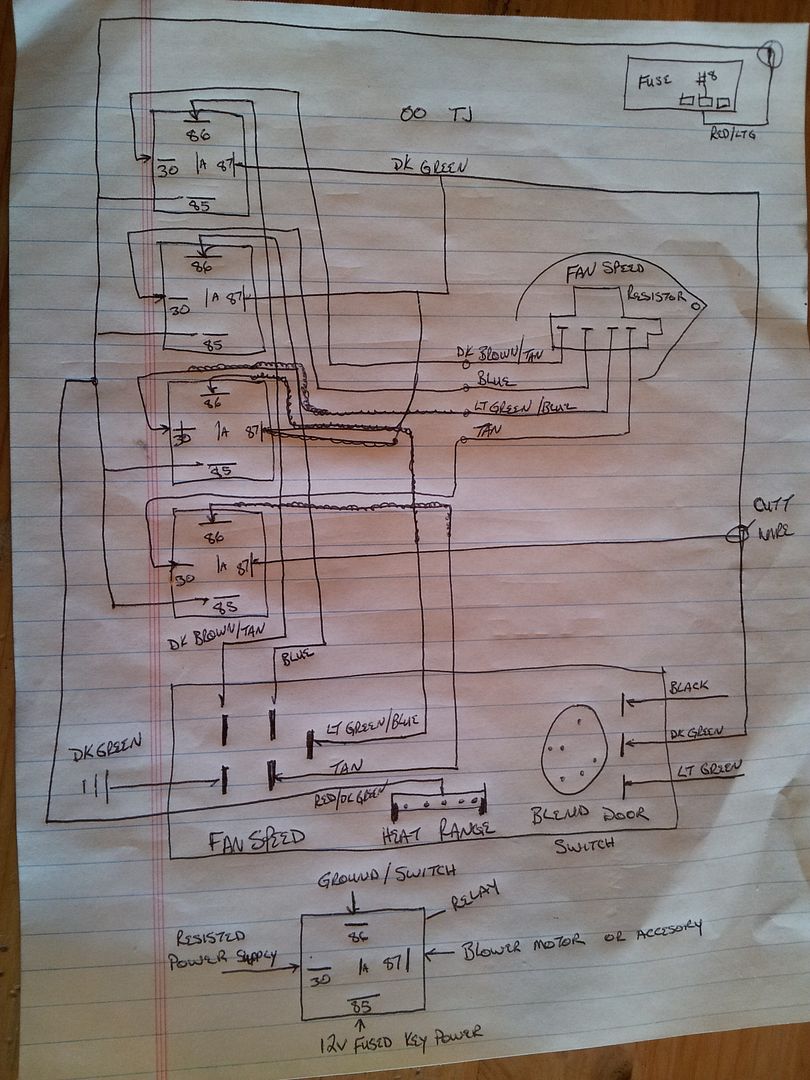 FUSE #8
RED/LTG
00 TJ
86
30 |A 87|
85
DK GREEN
86
30 |A 87|
85
FAN SPEED
RESISTOR
DK BROWN/TAN
BLUE
LT GREEN/BLUE
TAN
86
30 |A 87|
85
86
30 |A 87|
85
CUTT
WIRE
DK BROWN/TAN
BLUE
BLACK
LT GREEN/BLUE
DK GREEN
DK GREEN
TAN
LT GREEN
RED/DK GREEN
FAN SPEED
HEAT RANGE
BLEND DOOR
SWITCH
GROUND/SWITCH
RELAY
RESISTED
POWER SUPPLY
86
30 |A 87|
85
BLOWER MOTOR OR ACCESORY
12V FUSED KEY POWER